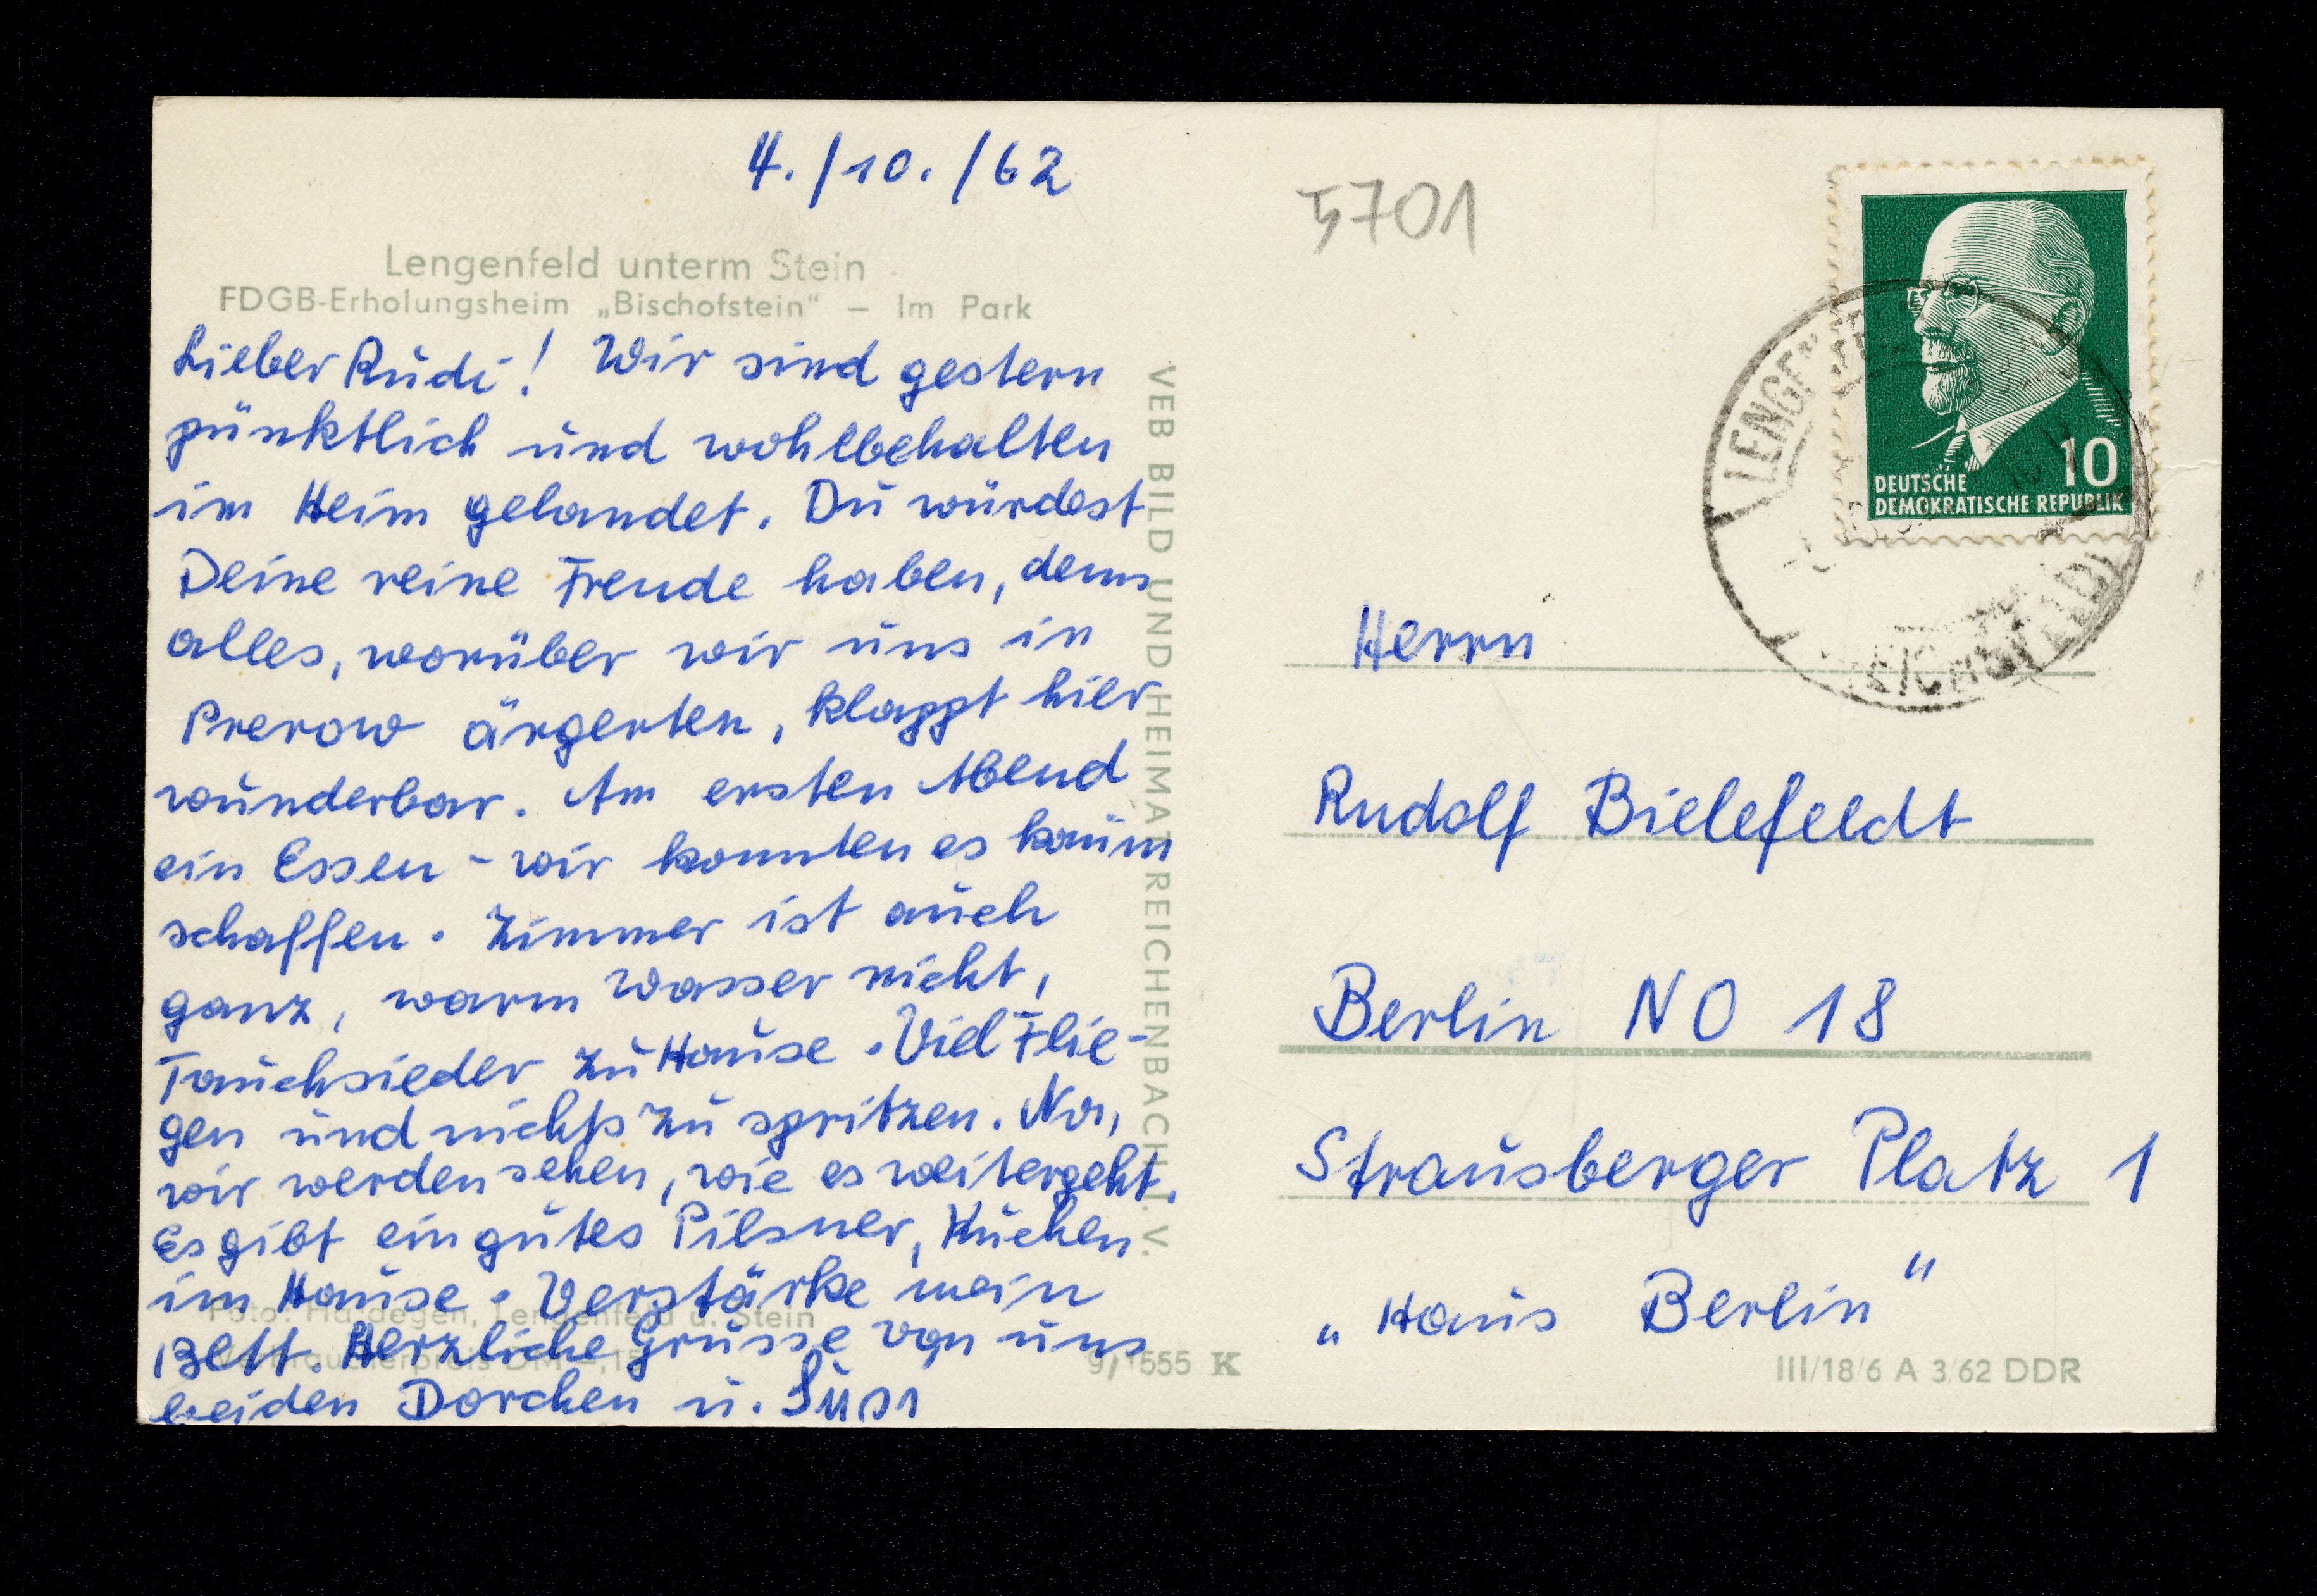 4./10./62
Lengenfeld unterm Stein
FDGB-Erholungsheim „Bischofstein“ – Im Park
Lieber Rudi! Wir sind gestern
pünktlich und wohlbehalten
im Heim gelandet. Du würdest
Deine reine Freude haben, denn
alles, worüber wir uns in
Prerow ärgerten, klappt hier
wunderbar. Am ersten Abend
ein Essen - wir konnten es kaum
schaffen. Zimmer ist auch
ganz, warm Wasser nicht,
Tauchsieder zu Hause. Viel Flie-
gen und nichts zu spritzen. Na,
wir werden sehen, wie es weitergeht.
Es gibt ein gutes Pilsner, Kuchen
im Hause. Verstärke mein
Bett. Herzliche Grüsse von uns
beiden Dorchen u.
Foto: Hardegen, Lengenfeld u. Stein
9/1555 K
VEB BILD UND HEIMAT REICHENBACH I. V.
5701
10
DEUTSCHE
DEMOKRATISCHE REPUBLIK
LENGENF
(EICHSFELD)
Herrn
Rudolf Bielefeldt
Berlin NO 18
Strausberger Platz 1
„Haus Berlin“
III/18/6 A 3/62 DDR